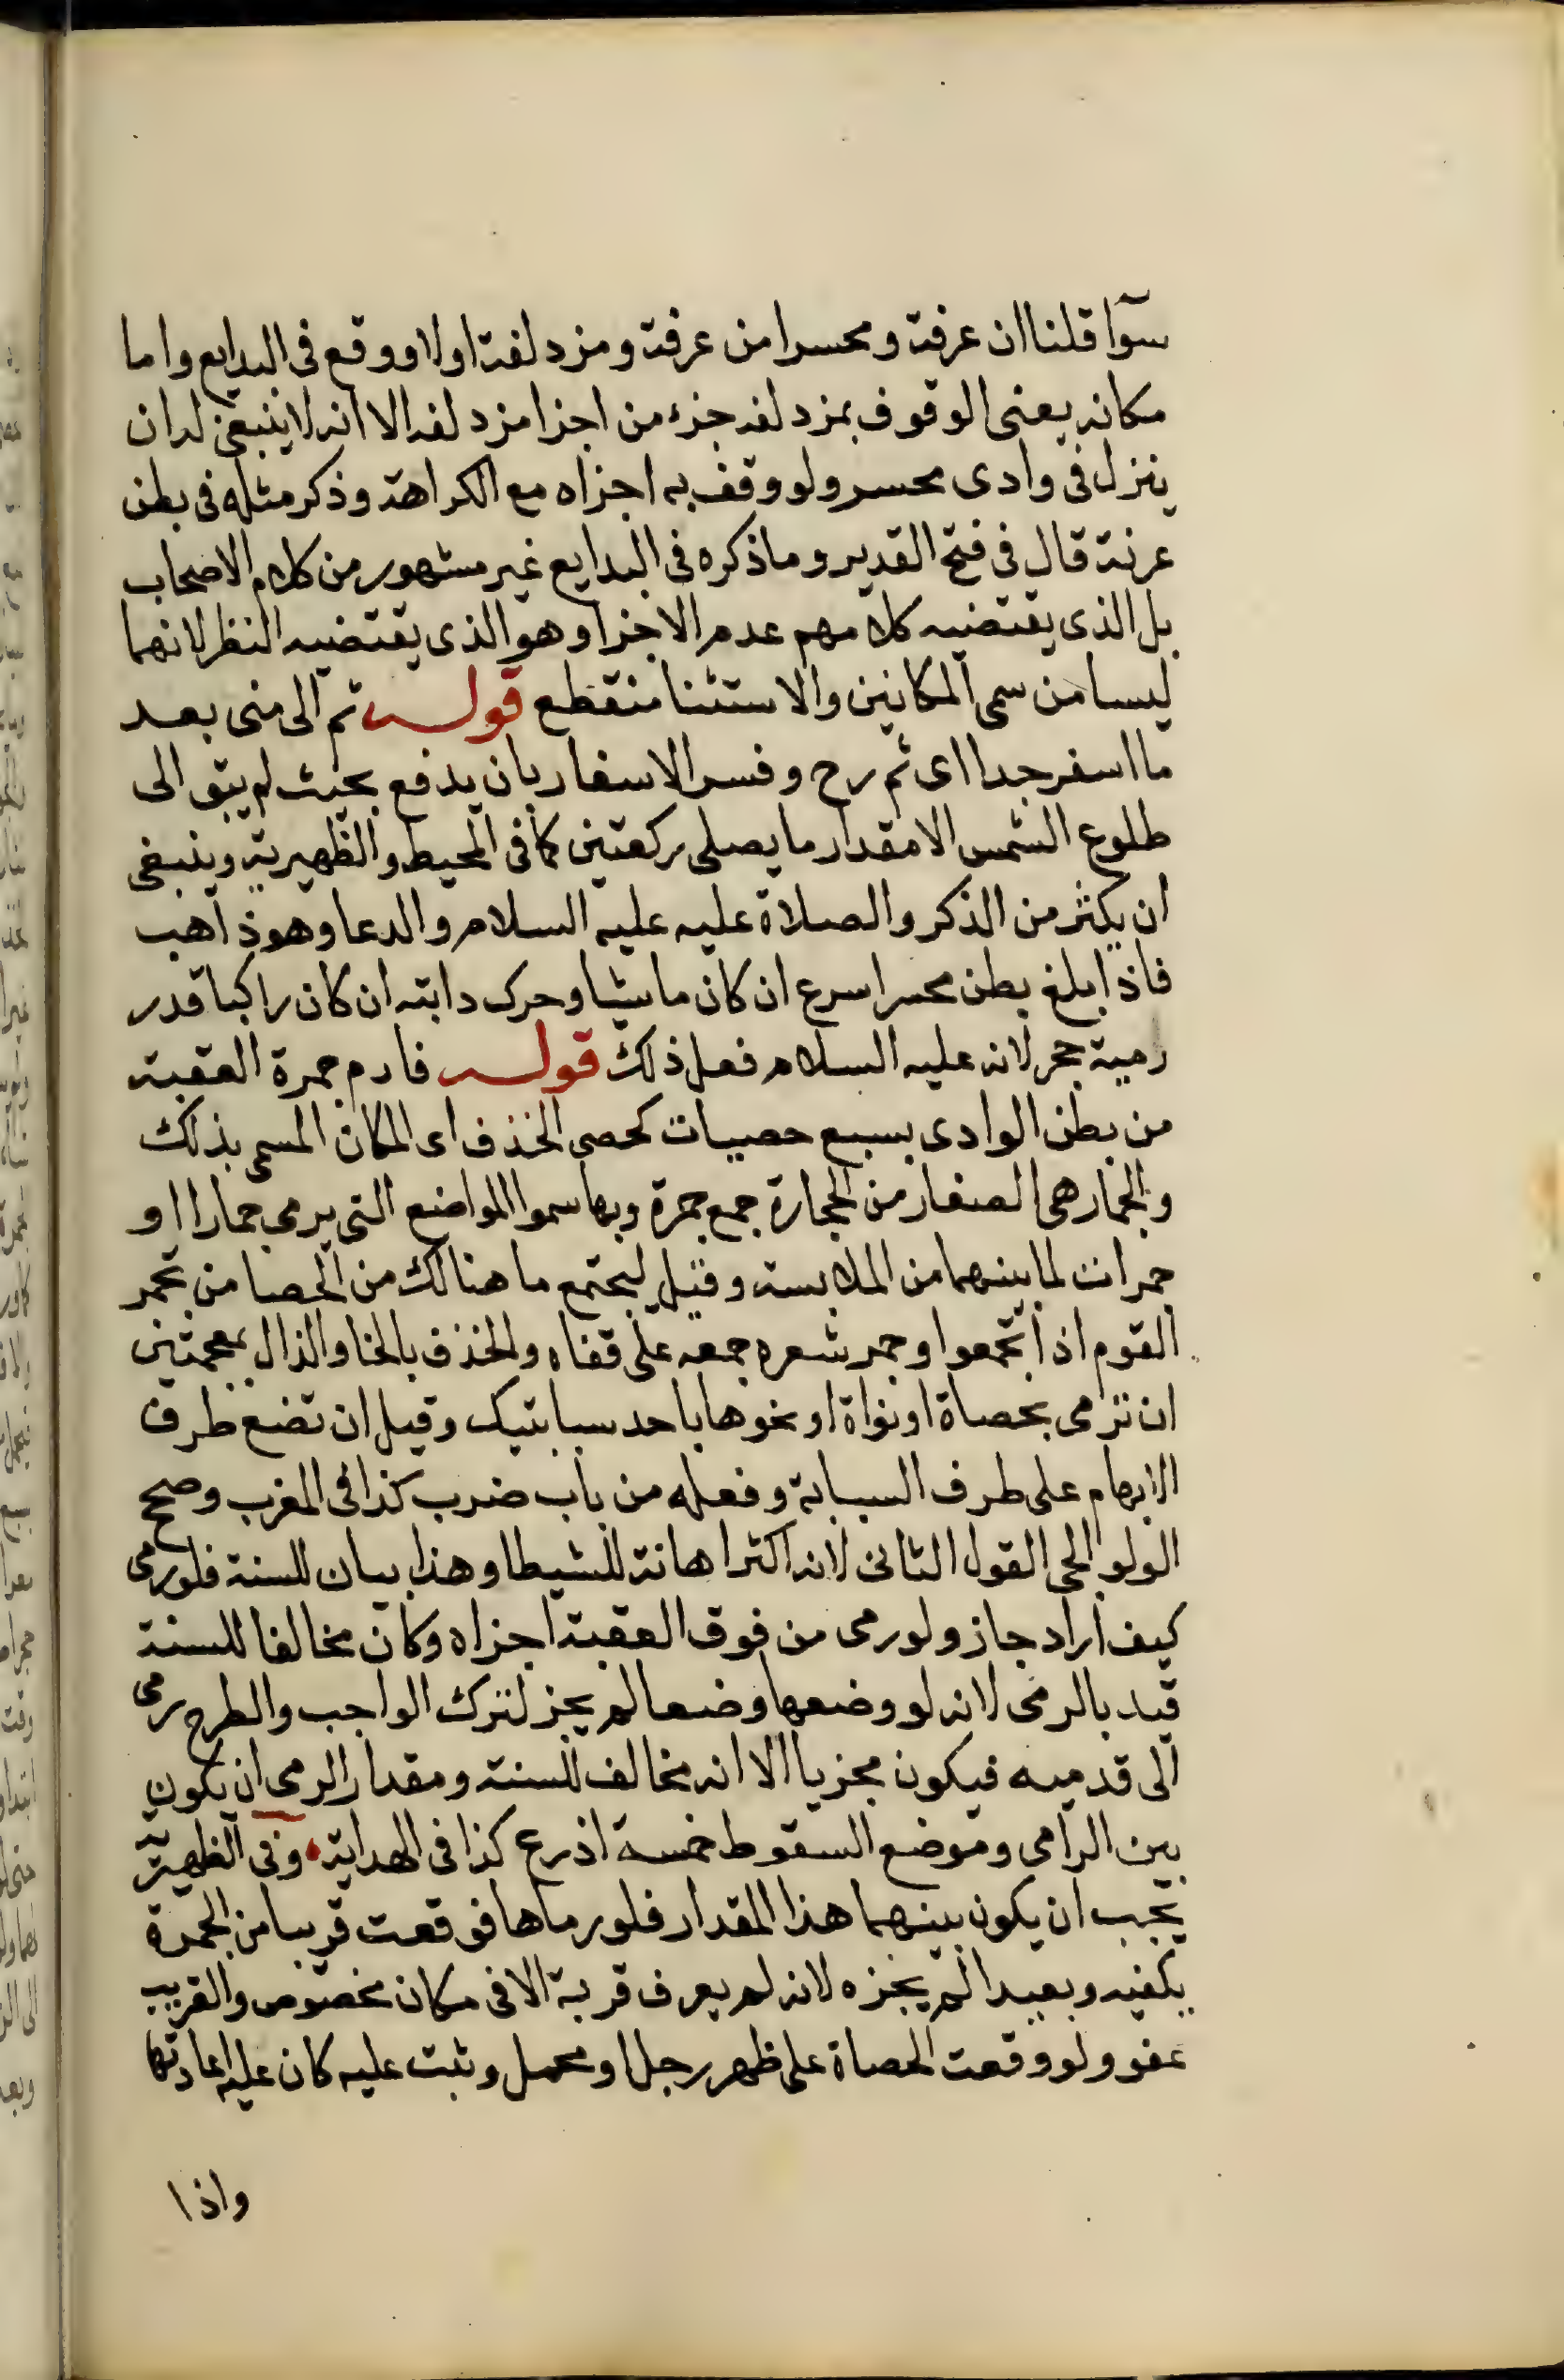 سوآ قلنا ان عرفة ومحسرا من عرفة ومزدلفة اولا ووقع فى البدايع واما
مكانه يعنى الوقوف بمزدلفه جزء من اجزا مزدلفه الا انه لا ينبغى له ان
ينزل فى وادى محسر ولو وقف به اجزاه مع الكراهة وذكر مثله فى بطن
عرنة قال فى فتح القدير وما ذكره فى البدايع غير مشهور من كلام الاصحاب
بل الذى يقتضيه كلامهم عدم الاجزا وهو الذى يقتضيه النظر لانهما
ليسا من سمى المكانين والاستثنا منقطع قوله ثم الى منى بعد
ما اسفر جدا اى ثم رح وفسر الاسفار بان يدفع بحيث لم يبق الى
طلوع الشمس الا مقدار ما يصلى ركعتين كما فى المحيط والظهيرية وينبغى
ان يكثر من الذكر والصلاة عليه عليه السلام والدعا وهو ذاهب
فاذا بلغ بطن محسر اسرع ان كان ماشيا وحرك دابته ان كان راكبا قدر
رمية حجر لانه عليه السلام فعل ذلك قوله فارم جمرة العقبة
من بطن الوادى بسبع حصيات كحصى الخذف اى المكان المسمى بذلك
والجمار هى الصغار من الحجارة جمع جمرة وبها سموا المواضع التى يرمى جمارا او
جمرات لما بينهما من الملابسة وقيل لتجتمع ما هنالك من الحصا من تجمر
القوم اذا تجمعوا وجمر شعره جمعه على قفاه والخذف بالخا والذال بمعجمتين
ان ترمى بحصاة او نواة او نحوها باحد سبابتيك وقيل ان تضع طرف
الابهام على طرف السبابة وفعله من باب ضرب كذا فى المغرب وصحح
الولوالجى القول الثانى لانه اكثر اهانة للشيطا وهذا بيان للسنة فلو رمى
كيف اراد جاز ولو رمى من فوق العقبة اجزاه وكان مخالفا للسنة
قيد بالرمى لانه لو وضعها وضعا لم يجز لترك الواجب والطرح رمى
الى قدميه فيكون مجزيا الا انه مخالف للسنة ومقدار الرمى ان يكون
بين الرامى وموضع السقوط خمسة اذرع كذا فى الهداية وفى الظهيرية
يجب ان يكون بينهما هذا المقدار فلو رماها فوقعت قريبا من الجمرة
يكفيه وبعيدا لم يجزه لانه لم يعرف قربة الا فى مكان مخصوص والقريب
عفو ولو وقعت الحصاة على ظهر رجل او محمل وثبت عليه كان عليه اعادتها
واذا